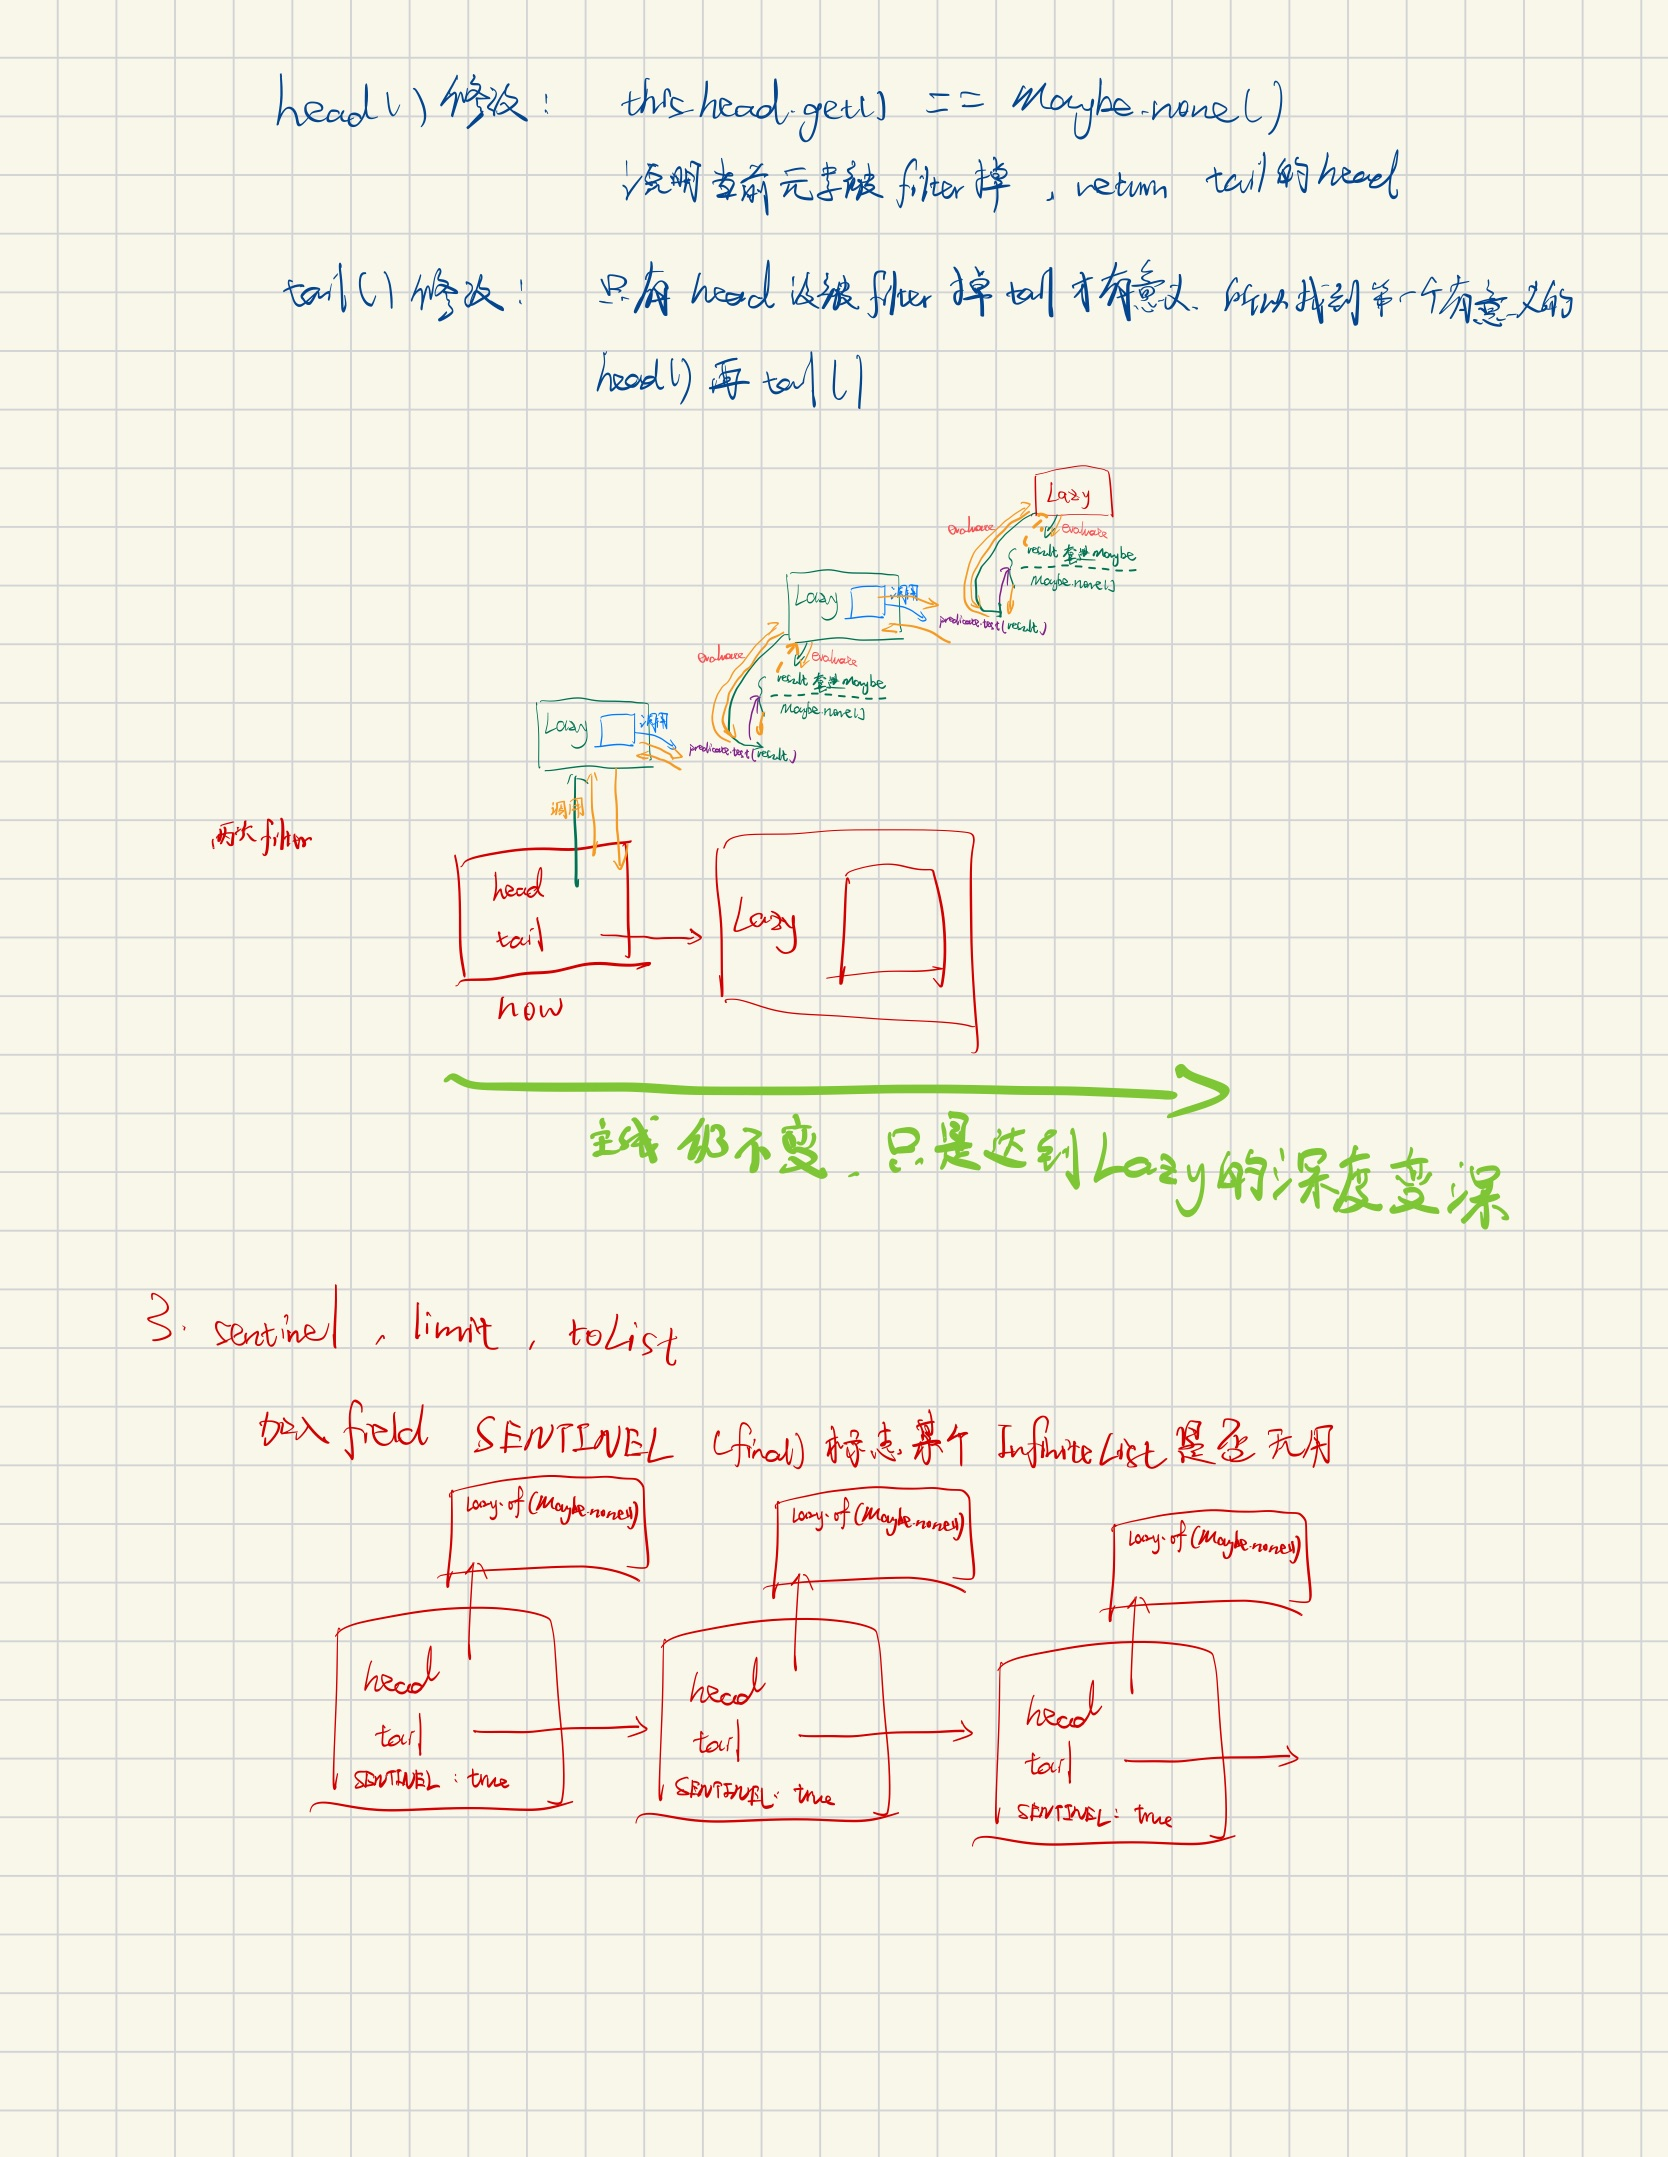 head()修改: this.head.get() == Maybe.none()
说明当前元素被filter掉, return tail的head
tail()修改: 只有head没被filter掉tail才有意义、所以找到第一个有意义的
head()再tail()
Lazy
evaluate
evaluate
result 套进Maybe
Maybe.none()
Lazy
调用
predicate.test(result)
evaluate
evaluate
result 套进Maybe
Maybe.none()
Lazy
调用
predicate.test(result)
调用
两次filter
head
tail
Lazy
now
主线仍不变、只是达到Lazy的深度变深
3. sentinel, limit, toList
加入field SENTINEL (final) 标志某个 InfiniteList是否无用
Lazy.of(Maybe.none())
Lazy.of(Maybe.none())
Lazy.of(Maybe.none())
head
tail
SENTINEL: true
head
tail
SENTINEL: true
head
tail
SENTINEL: true